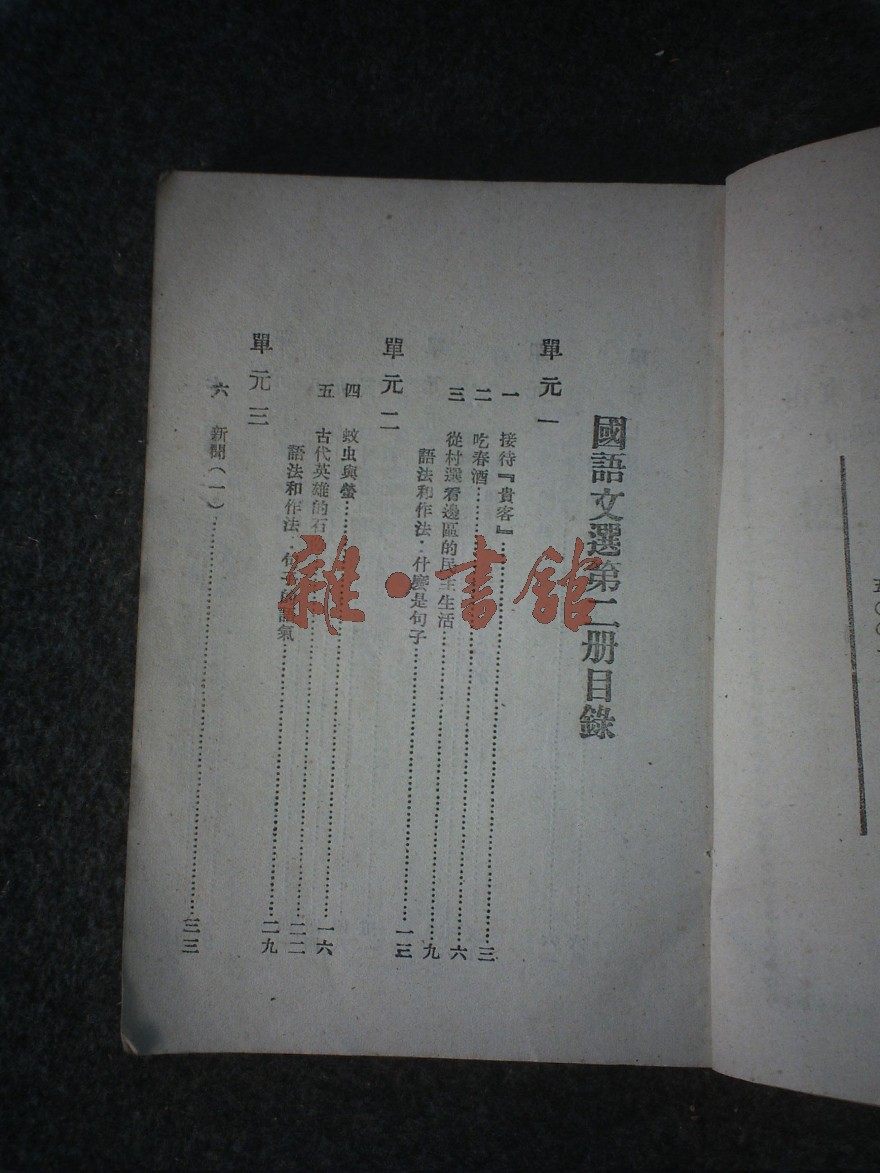 國語文選第二册目錄
單元一
一 接待『貴客』……三
二 吃春酒……六
三 從村選看邊區的民主生活……九
語法和作法：什麼是句子……一三
單元二
四 蚊虫與螢……一六
五 古代英雄的石……二二
語法和作法：句子的語氣……二九
單元三
六 新聞（一）……三三
雜·書館